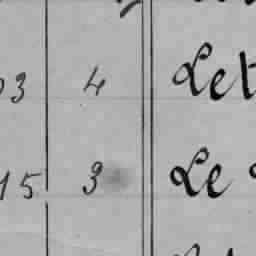 03 4 Let
15 3 Le